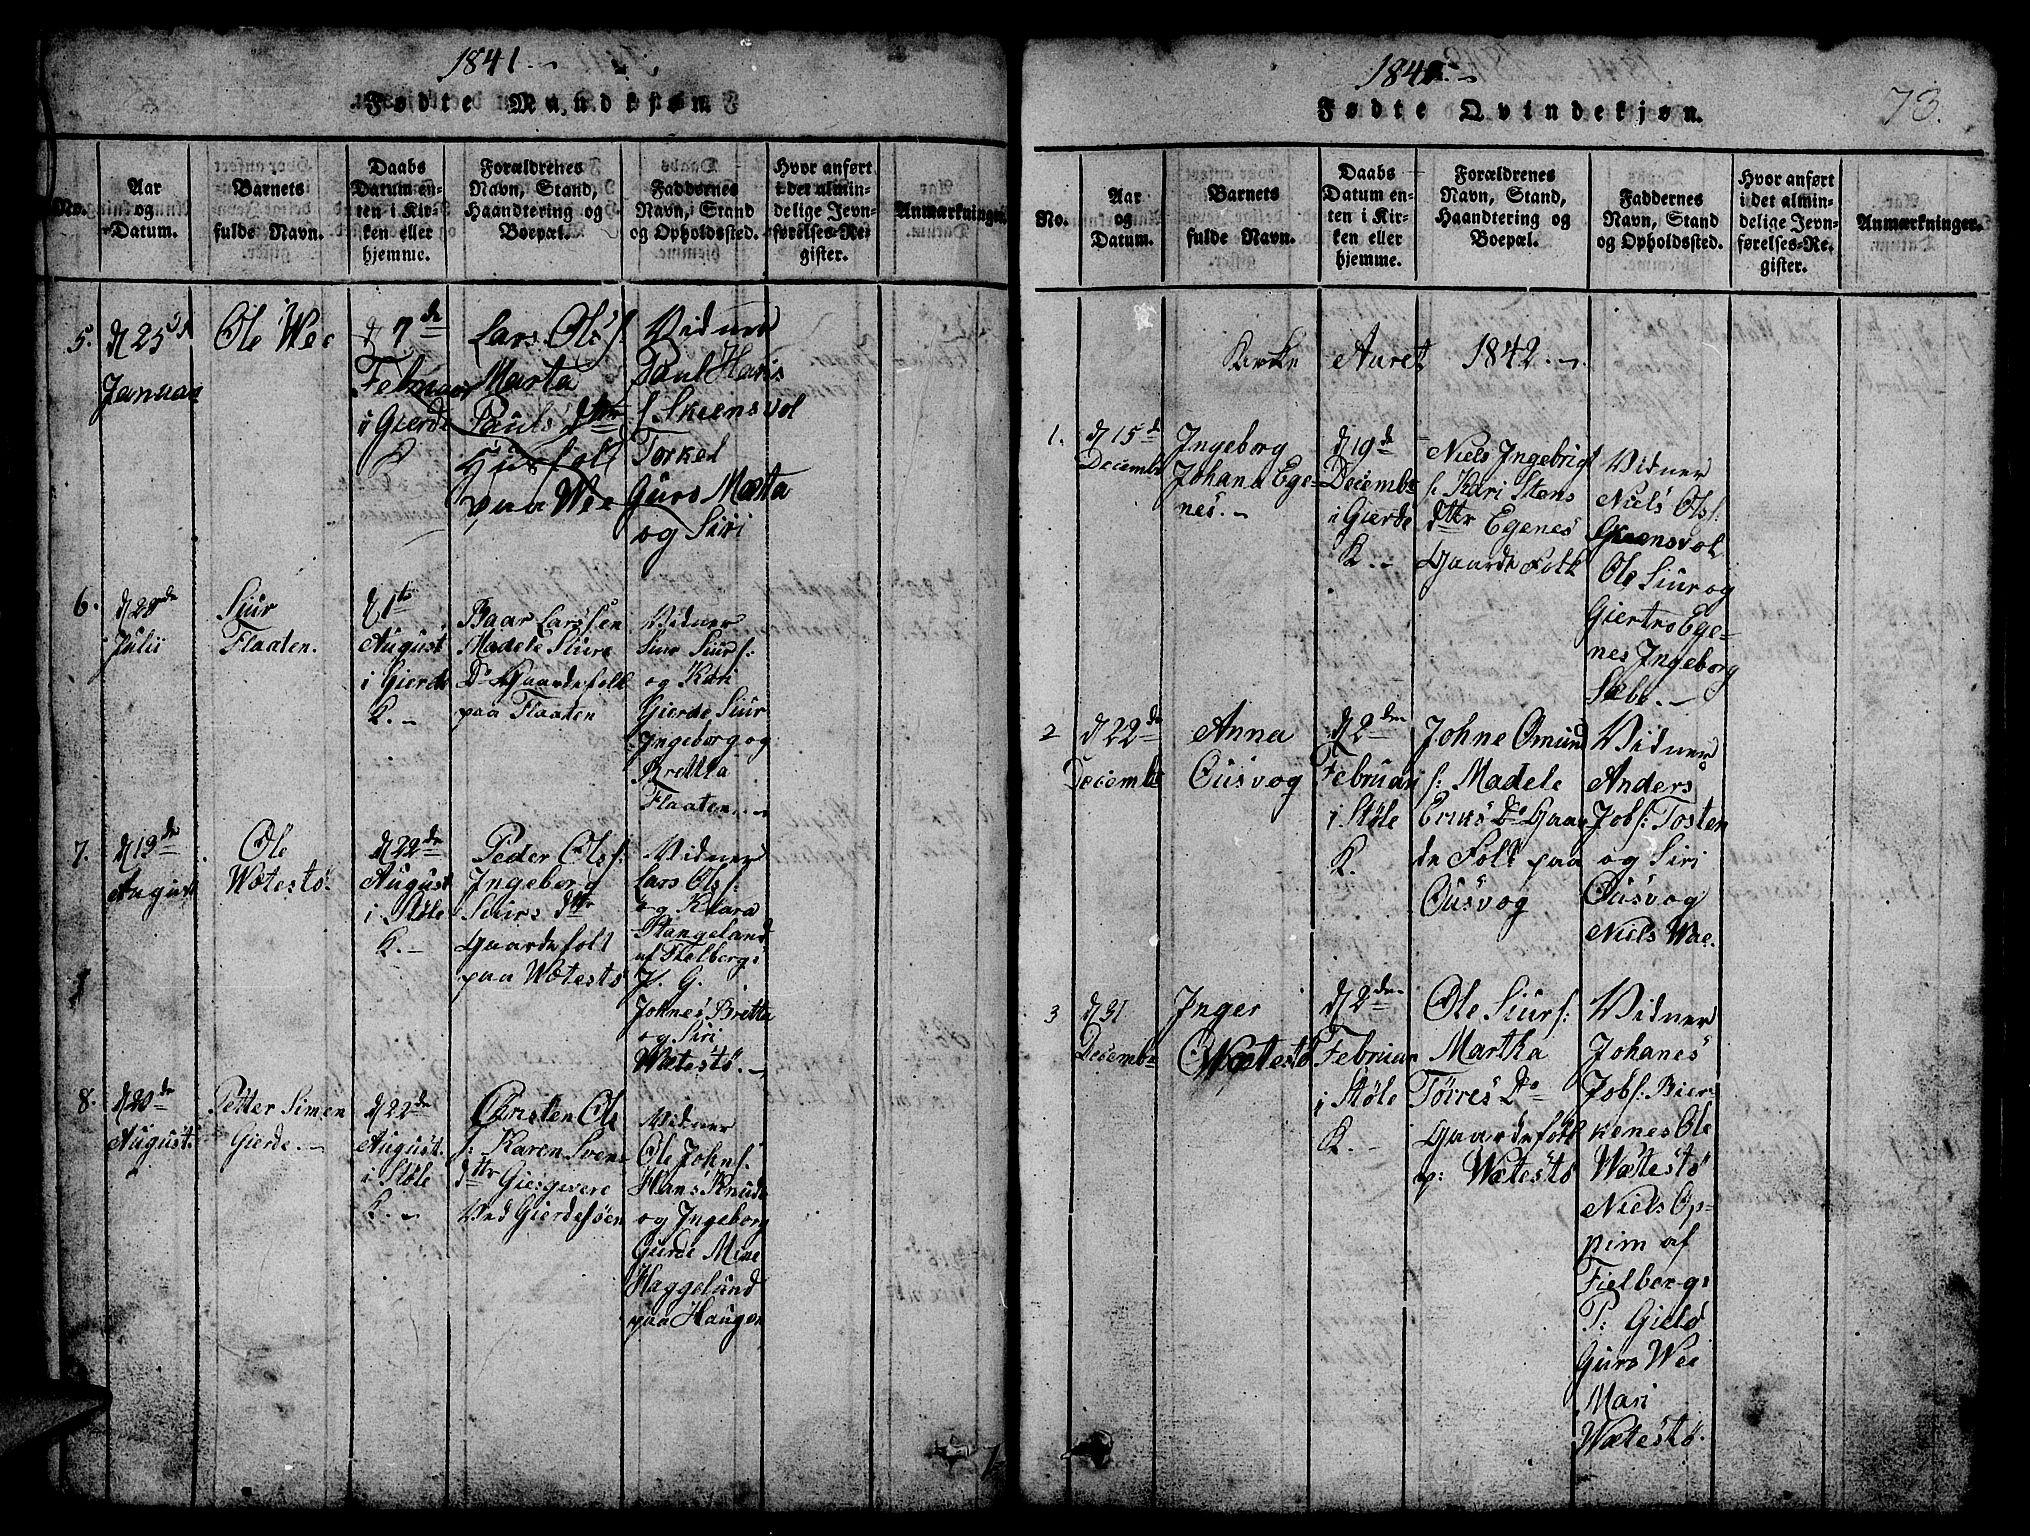 1841.
Fødte Mandkjøn.
No.
Aar
og
Datum.
Barnets
fulde Navn.
Daabs
Datum en-
ten i Kir-
ken eller
hjemme.
Forældrenes
Navn, Stand,
Haandtering og
Boepæl.
Faddernes
Navn, Stand
og Opholdssted.
Hvor anført
i det almin-
delige Jevn-
førelses-Re-
gister.
Anmærkninger.
5.
d 25de
Januar
Ole Wee
d 7de
Februar
i Gierde
K
Lars Ols f.
Marta
Pauls dttr
Huusfolk
paa Wee
Vidner
Paul Hans
f. Skeensvol
Torkel
Guro Mæta
og Siri
6.
d 28de
Julii
Siur
Flaaten.
d 1te
August
i Gierde
K.
Baar Larssen
Madele Siurs
Dr Gaardefolk
paa Flaaten
Vidner
Siur Siurs:
og Kari
Gierde, Siur
Ingeborg og
Britta
Flaaten.
7.
d 19de
August
Ole
Wætestø.
d 22de
August
i Støle
K.
Peder Ols f:
Ingeborg
Siurs dttr
Gaardefolk
paa Wætestø
Vidner
Lars Ols f:
og Klara
Stangeland
af Fielbergs
P. G.
Johnes Britta
og Siri
Wætestø.
8.
d 20de
August
Petter Simen
Gierde.
d 22de
August.
i Støle
K.
Christen Ols
f: Karen Svens
dttr Giesgivere
Ved Gierdesøen
Vidner
Ole Johns f.
Hans Knuds
og Ingeborg
Gierde Mine
Haggelund
paa Haugen
1842.
73.
Fødte Qvindekjøn.
No.
Aar
og
Datum.
Barnets
fulde Navn.
Daabs
Datum en-
ten i Kir-
ken eller
hjemme.
Forældrenes
Navn, Stand,
Haandtering og
Boepæl.
Faddernes
Navn, Stand
og Opholdssted.
Hvor anført
i det almin-
delige Jevn-
førelses-Re-
gister.
Anmærkninger.
Kirke Aaret 1842.
1.
d 15de
Decembr
Ingeborg
Johana Ege-
nes.
d 19de
Decembr
i Gierde
K.
Niels Ingebrigt
f: Kari Stens
dttr Egenes
Gaarde Folk
Vidner
Niels Ols f:
Skeensvol
Ole Siur og
Giertro Ege-
nes Ingeborg
Sæbe.
2
d 22de
Decembr
Anna
Ousvog
d 2den
Februar
i Støle
K.
Johne Omund
f: Madele
Eriks Dr Gaar
de Folk paa
Ousvog
Vidner
Anders
Jobs f: Tosten
og Siri
Ousvog
Niels Wae.
3
d 31
Decembr
Inger
Wætestø
d 2den
Februar
i Støle
K.
Ole Siurs f:
Martha
Tørres Dr
Gaardefolk
p: Wætestø
Vidner
Johanes
Jobs f: Bier-
kenes Ole
Wætestø
Niels Op-
pim af
Fielbergs
P: Gield
Guro Wee
Mari
Wætestø.